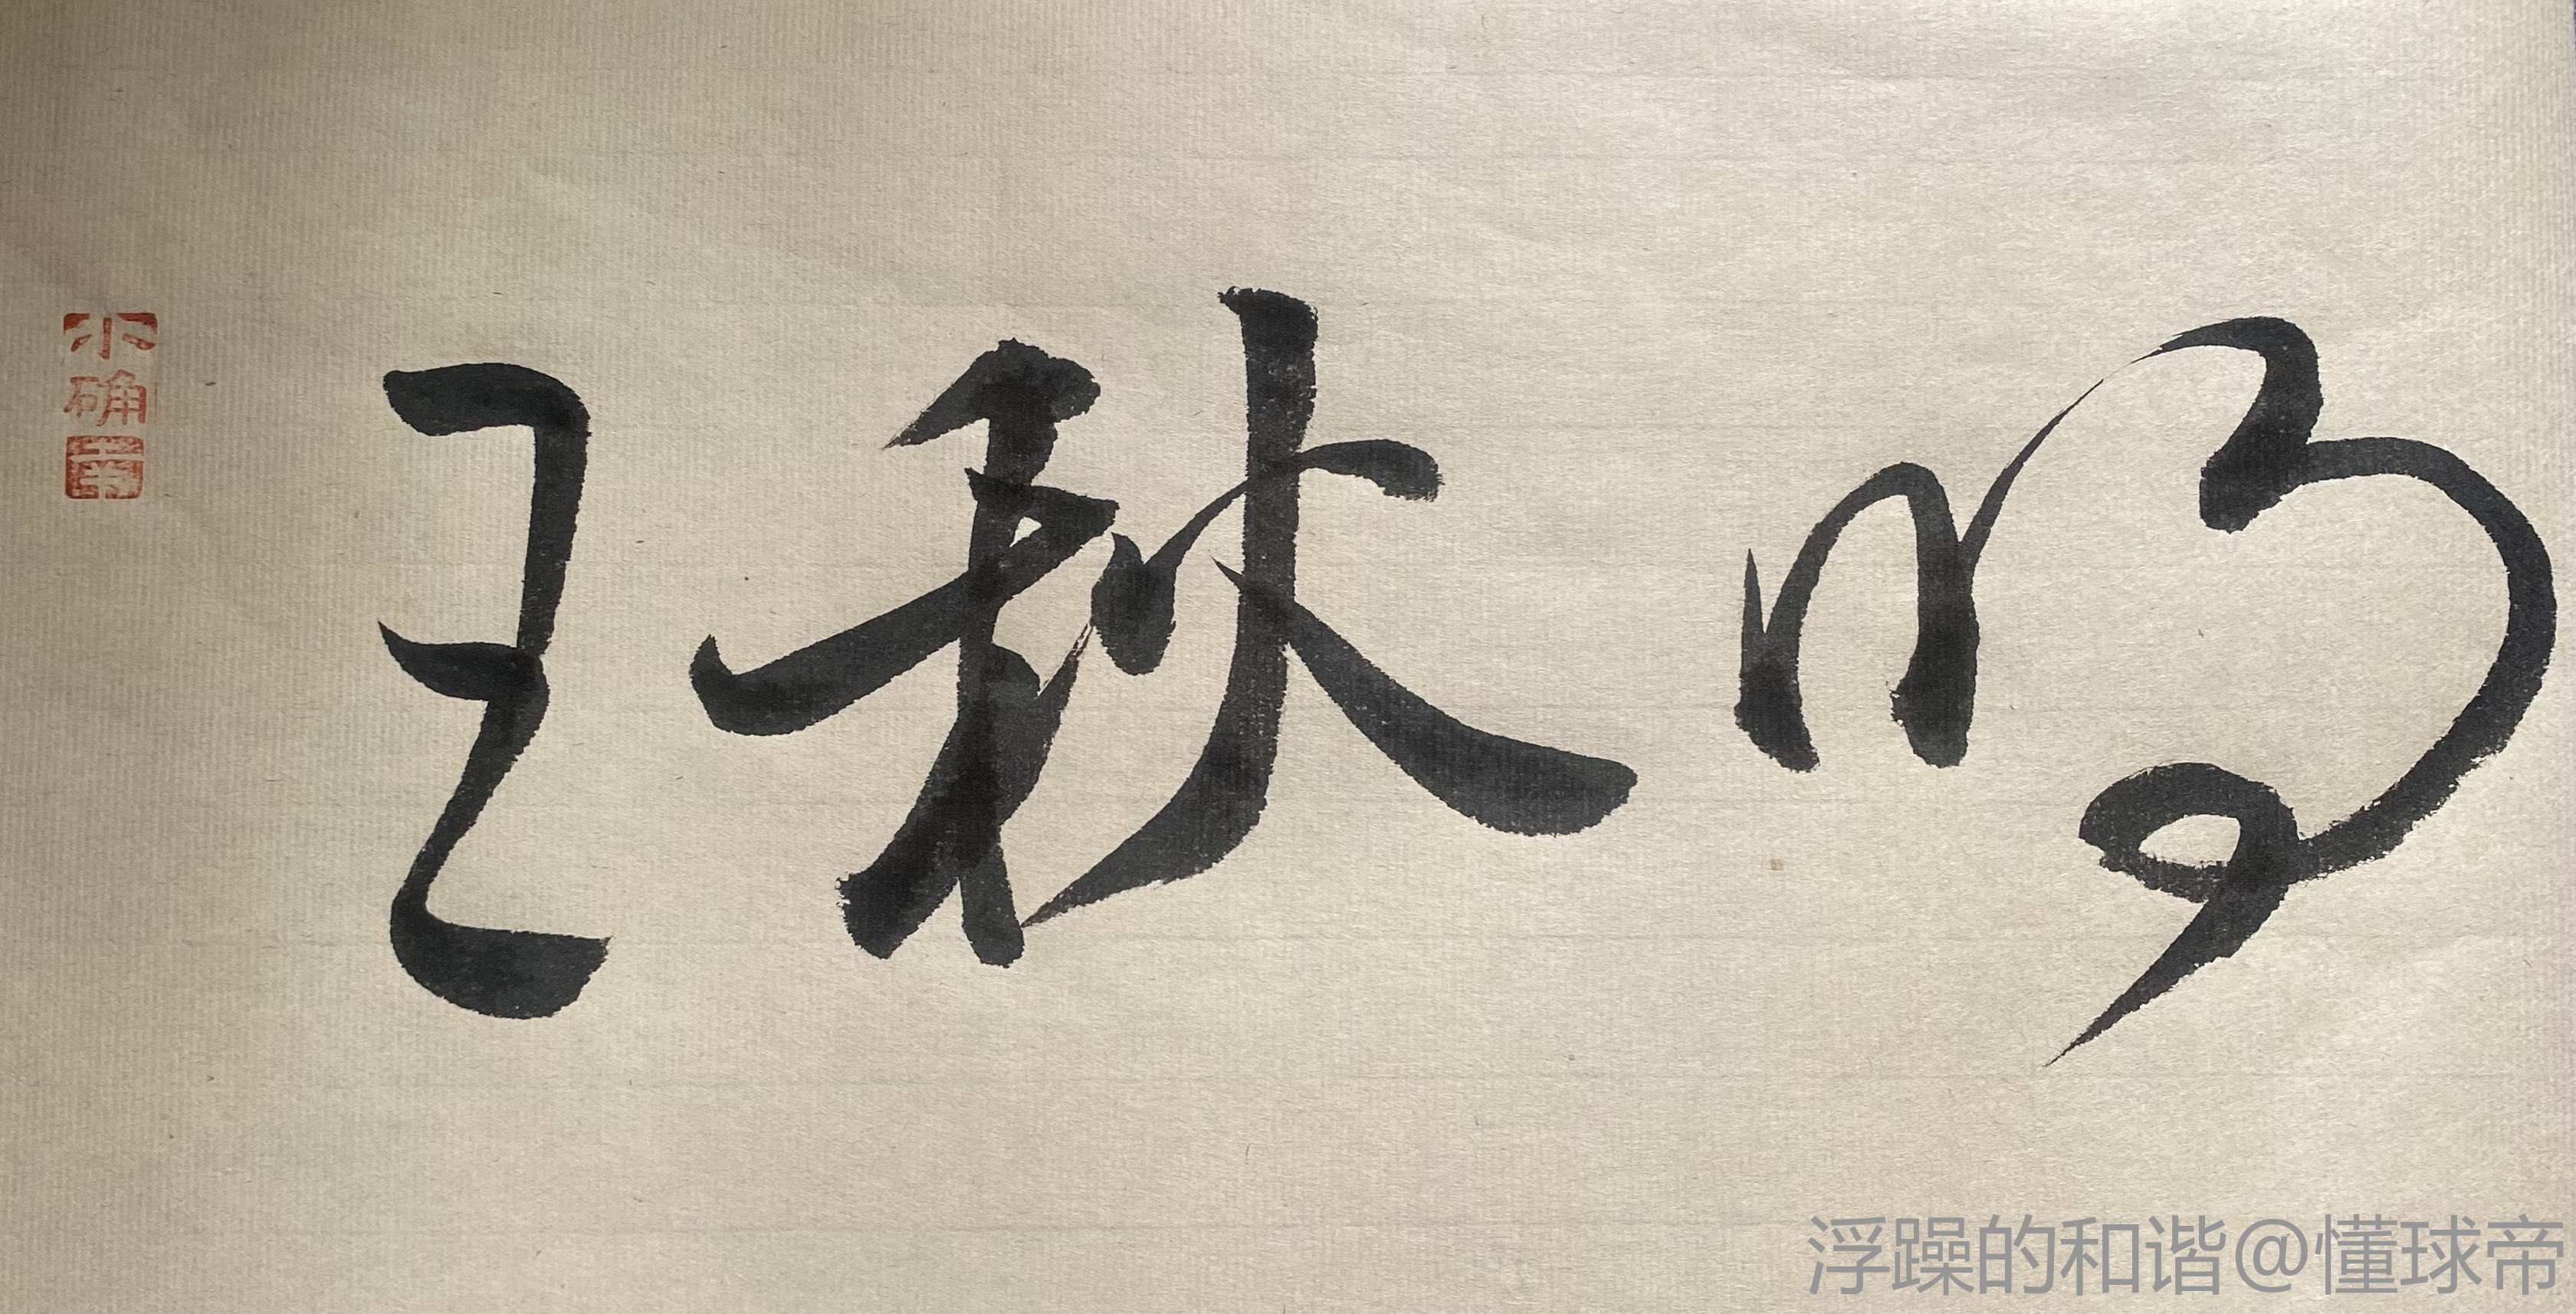 王秋明
小确幸
浮躁的和谐@懂球帝